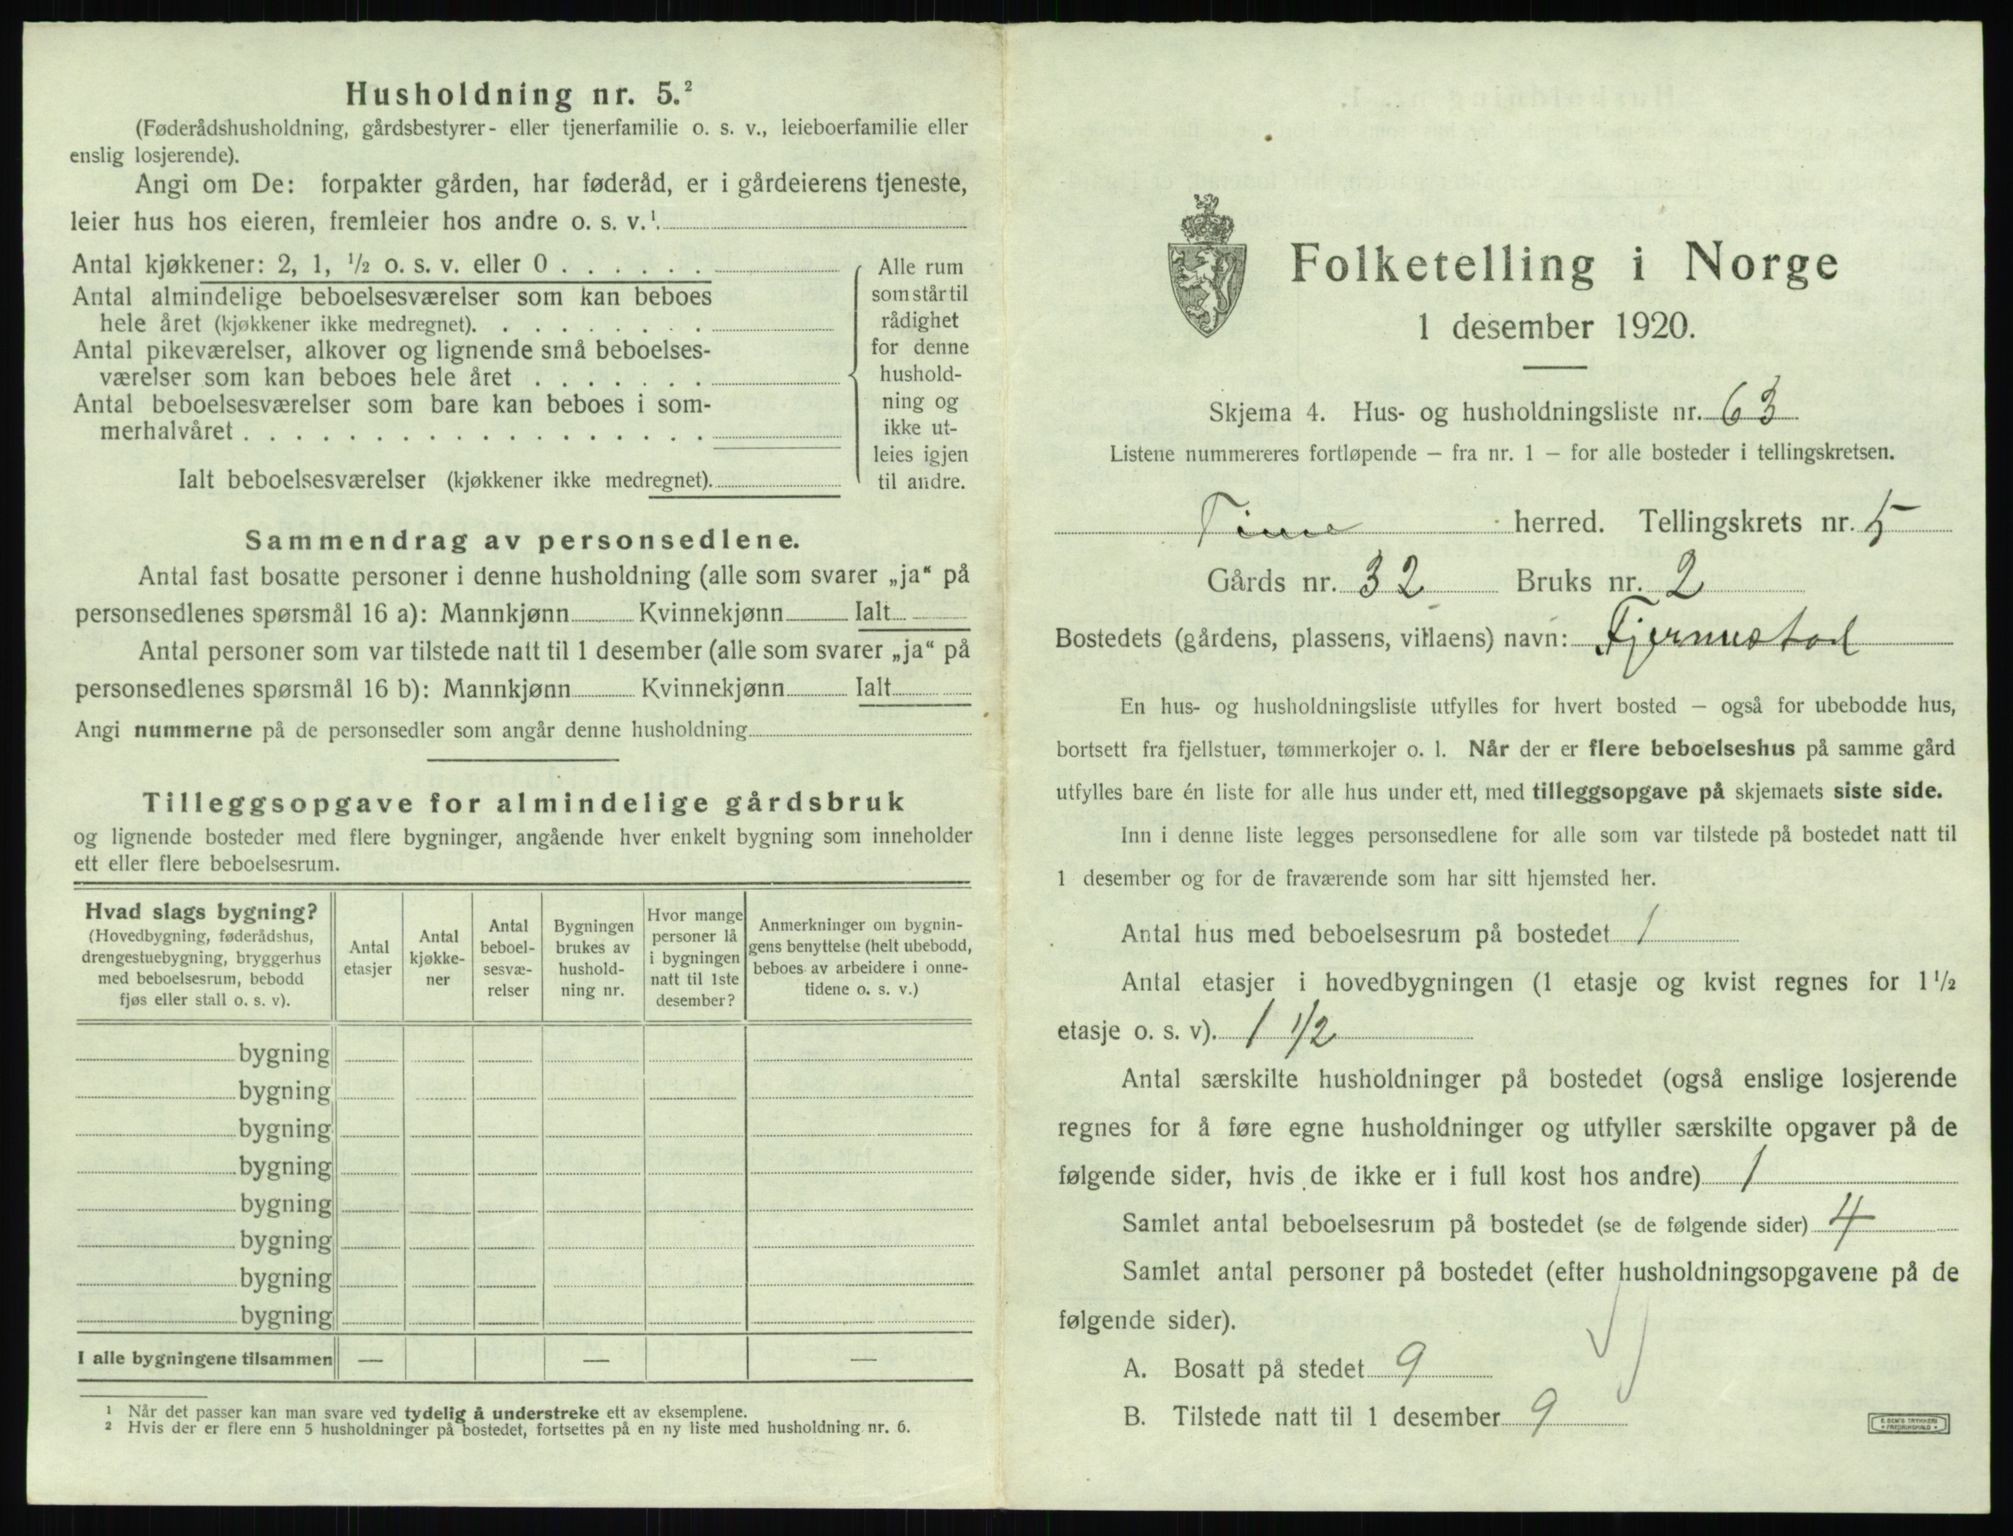 Husholdning nr. 5.²
(Føderådshusholdning, gårdsbestyrer- eller tjenerfamilie o. s. v., leieboerfamilie eller
enslig losjerende).
Angi om De: forpakter gården, har føderåd, er i gårdeierens tjeneste,
leier hus hos eieren, fremleier hos andre o. s. v.¹.
Antal kjøkkener: 2, 1, ½ o. s. v. eller 0 . . . . . .
Antal almindelige beboelsesværelser som kan beboes
hele året (kjøkkener ikke medregnet). . . . . . . . .
Antal pikeværelser, alkover og lignende små beboelses-
værelser som kan beboes hele året . . . . . . .
Antal beboelsesværelser som bare kan beboes i som-
merhalvåret . . . . . . . . . . . . . . . . . .
Ialt beboelsesværelser (kjøkkener ikke medregnet).
Alle rum
som står til
rådighet
for denne
hushold-
ning og
ikke ut-
leies igjen
til andre.
Sammendrag av personsedlene.
Antal fast bosatte personer i denne husholdning (alle som svarer „ja“ på
personsedlenes spørsmål 16 a): Mannkjønn Kvinnekjønn Ialt
Antal personer som var tilstede natt til 1 desember (alle som svarer „ja“ på
personsedlenes spørsmål 16 b): Mannkjønn Kvinnekjønn Ialt
Angi nummerne på de personsedler som angår denne husholdning
Tilleggsopgave for almindelige gårdsbruk
og lignende bosteder med flere bygninger, angående hver enkelt bygning som inneholder
ett eller flere beboelsesrum.
Hvad slags bygning?
(Hovedbygning, føderådshus,
drengestuebygning, bryggerhus
med beboelsesrum, bebodd
fjøs eller stall o. s. v).
Antal
etasjer
Antal
kjøkke-
ner
Antal
beboel-
sesvæ-
relser
Bygningen
brukes av
hushold-
ning nr.
Hvor mange
personer lå
i bygningen
natt til 1ste
desember?
Anmerkninger om bygnin-
gens benyttelse (helt ubebodd,
beboes av arbeidere i onne-
tidene o. s. v.)
bygning
bygning
bygning
bygning
bygning
bygning
bygning
bygning
I alle bygningene tilsammen — — —
¹ Når det passer kan man svare ved tydelig å understreke ett av eksemplene.
² Hvis der er flere enn 5 husholdninger på bostedet, fortsettes på en ny liste med husholdning nr. 6.
Folketelling i Norge
1 desember 1920.
Skjema 4. Hus- og husholdningsliste nr. 63
Listene nummereres fortløpende — fra nr. 1 — for alle bosteder i tellingskretsen.
Time herred. Tellingskrets nr. 5
Gårds nr. 32 Bruks nr. 2
Bostedets (gårdens, plassens, villaens) navn: Fjermestad
En hus- og husholdningsliste utfylles for hvert bosted — også for ubebodde hus,
bortsett fra fjellstuer, tømmerkojer o. l. Når der er flere beboelseshus på samme gård
utfylles bare én liste for alle hus under ett, med tilleggsopgave på skjemaets siste side.
Inn i denne liste legges personsedlene for alle som var tilstede på bostedet natt til
1 desember og for de fraværende som har sitt hjemsted her.
Antal hus med beboelsesrum på bostedet 1
Antal etasjer i hovedbygningen (1 etasje og kvist regnes for 1½
etasje o. s. v). 1 ½
Antal særskilte husholdninger på bostedet (også enslige losjerende
regnes for å føre egne husholdninger og utfyller særskilte opgaver på de
følgende sider, hvis de ikke er i full kost hos andre) 1
Samlet antal beboelsesrum på bostedet (se de følgende sider) 4
Samlet antal personer på bostedet (efter husholdningsopgavene på de
følgende sider).
A. Bosatt på stedet 9
B. Tilstede natt til 1 desember 9